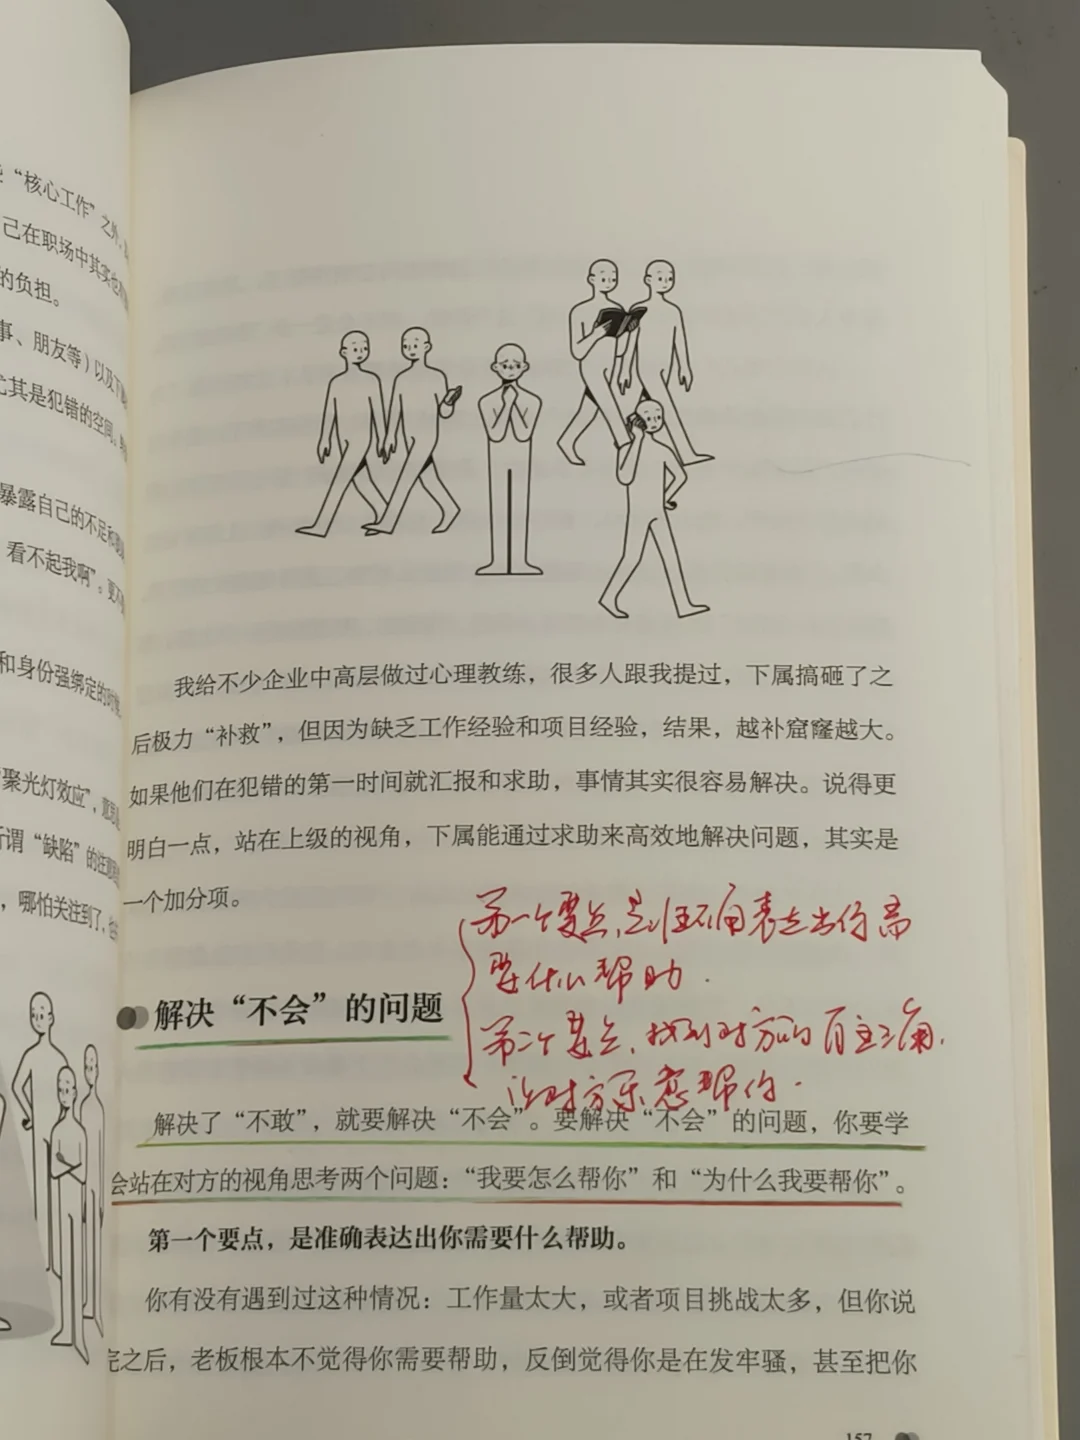 “核心工作”之外，
己在职场中其实也
的负担。
事、朋友等）以及下
尤其是犯错的空间。
暴露自己的不足和
看不起我啊”。更不
和身份强绑定的时候，
“聚光灯效应”，意思是
所谓“缺陷”的注意
，哪怕关注到了，
我给不少企业中高层做过心理教练，很多人跟我提过，下属搞砸了之
后极力“补救”，但因为缺乏工作经验和项目经验，结果，越补窟窿越大。
如果他们在犯错的第一时间就汇报和求助，事情其实很容易解决。说得更
明白一点，站在上级的视角，下属能通过求助来高效地解决问题，其实是
一个加分项。
第一个要点，是准确表达出你需
要什么帮助.
解决“不会”的问题
第二个要点，找到对方的
让对方乐意帮你.
解决了“不敢”，就要解决“不会”。要解决“不会”的问题，你要学
会站在对方的视角思考两个问题：“我要怎么帮你”和“为什么我要帮你”。
第一个要点，是准确表达出你需要什么帮助。
你有没有遇到过这种情况：工作量太大，或者项目挑战太多，但你说
完之后，老板根本不觉得你需要帮助，反倒觉得你是在发牢骚，甚至把你
157